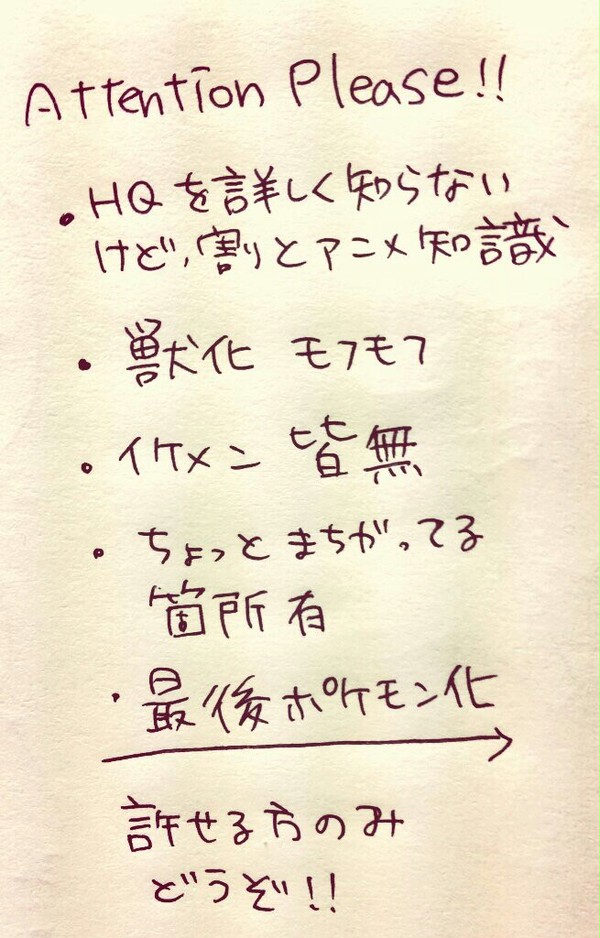 Attention Please!!
・HQを詳しく知らない
けど、割とアニメ知識
・獣化 モフモフ
・イケメン 皆無
・ちょっとまちがってる
箇所有
・最後ポケモン化
許せる方のみ
どうぞ!!